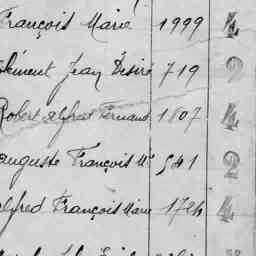 François Marie 1999 4
Clément Jean Désiré 719 2
Robert Alfred Fernand 1807 4
Auguste François Mie 541 2
Alfred François Marie 1724 4